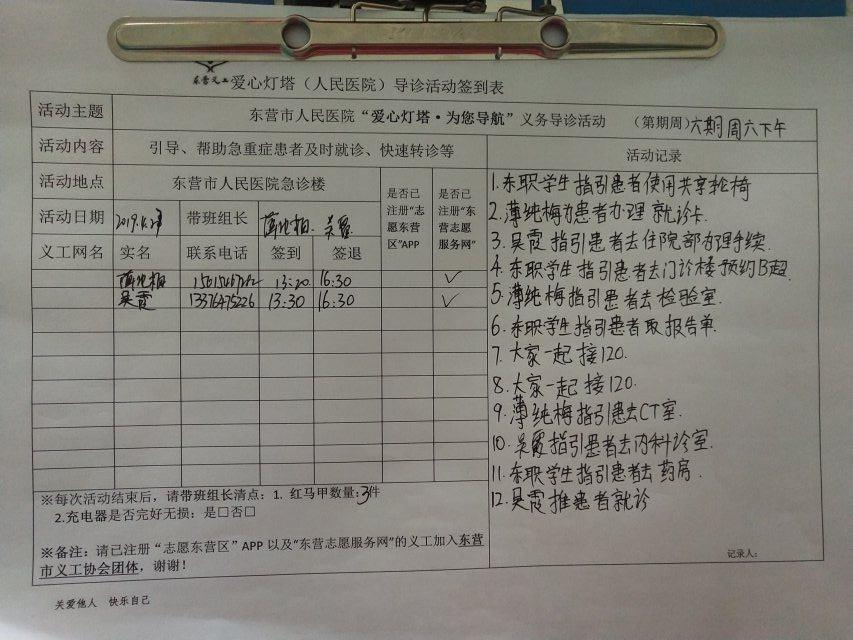 东营义工 爱心灯塔（人民医院）导诊活动签到表
活动主题 东营市人民医院“爱心灯塔·为您导航”义务导诊活动 （第期周）六期周六下午
活动内容 引导、帮助急重症患者及时就诊、快速转诊等
活动地点 东营市人民医院急诊楼
活动日期 2019.4.27 带班组长 薄纯梅. 吴霞
是否已注册“志愿东营区”APP
是否已注册“东营志愿服务网”
义工网名 实名 联系电话 签到 签退
薄纯梅 13:20 16:30 ✓
吴霞 13376475226 13:30 16:30 ✓
※每次活动结束后，请带班组长清点：1. 红马甲数量：3件
2.充电器是否完好无损：是□否□
※备注：请已注册“志愿东营区”APP 以及“东营志愿服务网”的义工加入东营
市义工协会团体，谢谢！
活动记录
1.东职学生指引患者使用共享轮椅
2.薄纯梅为患者办理就诊卡.
3.吴霞指引患者去住院部办理手续.
4.东职学生指引患者去门诊楼预约B超.
5.薄纯梅指引患者去检验室.
6.东职学生指引患者取报告单.
7.大家一起接120.
8.大家一起接120.
9.薄纯梅指引患去CT室.
10.吴霞指引患者去内科诊室.
11.东职学生指引患者去药房.
12.吴霞推患者就诊
记录人：
关爱他人 快乐自己